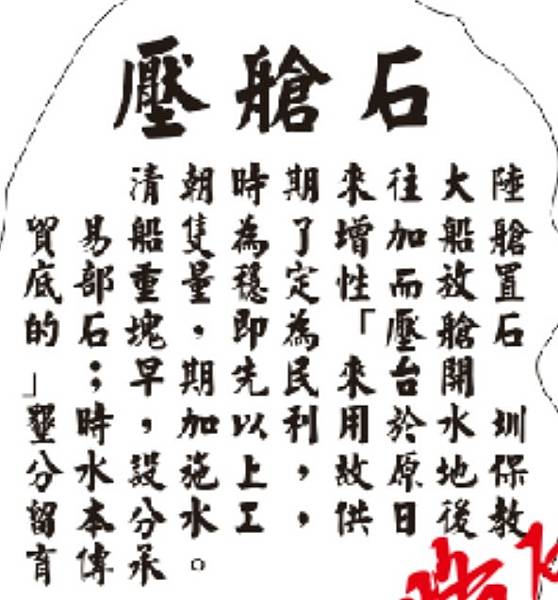 壓艙石
清朝時期來往大陸
貿易船隻為了增加船艙
底部重量穩定性而放置
的石塊，即為「壓艙石
」；早期先民來台開
墾時，加以利用於水圳
分水設施上，故原地保
留本分水工，供日後教
育傳承。